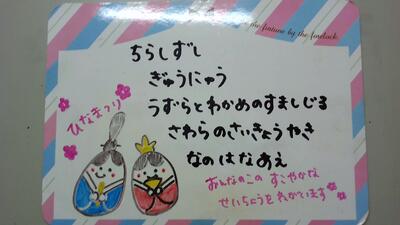 the fintune by the finelock.
ちらしずし
ぎゅうにゅう
うずらとわかめのすましじる
さわらのさいきょうやき
なのはなあえ
ひなまつり
おんなのこの すこやかな
せいちょうをねがいます